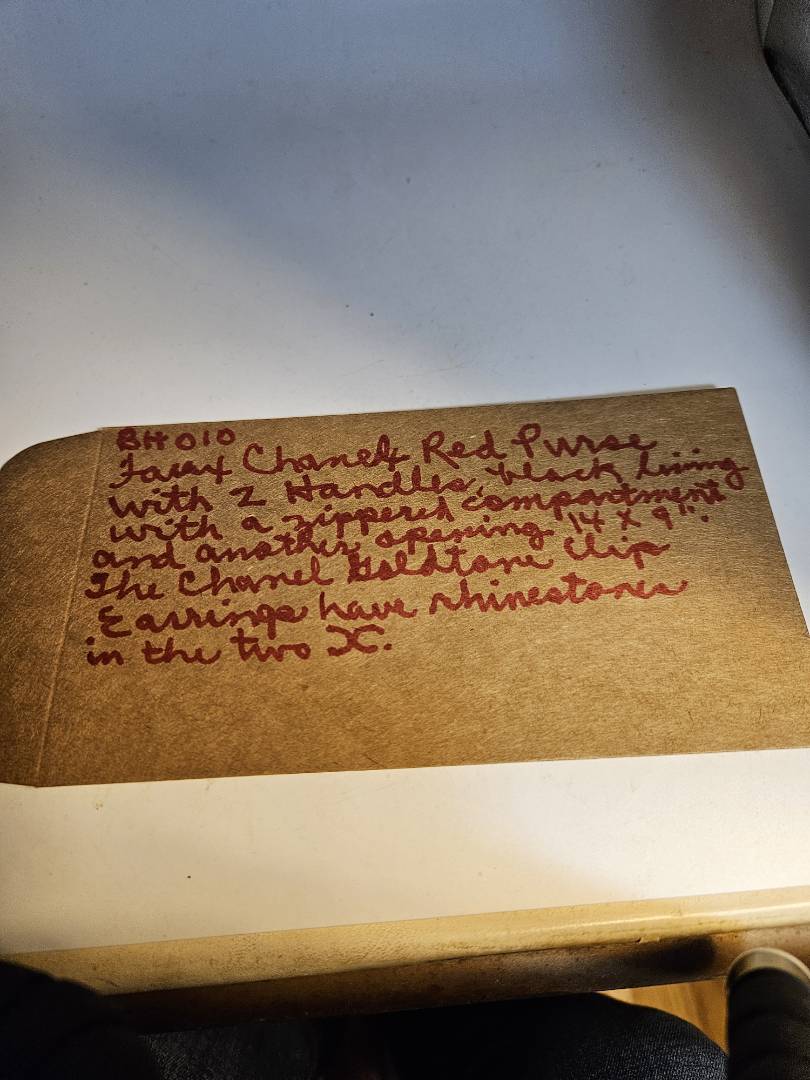 BH 010
Faux Chanel Red Purse
with 2 Handles, black lining
with a zippered compartment
and another opening 14 x 9".
The Chanel Goldtone Clip
Earrings have rhinestones
in the two C.